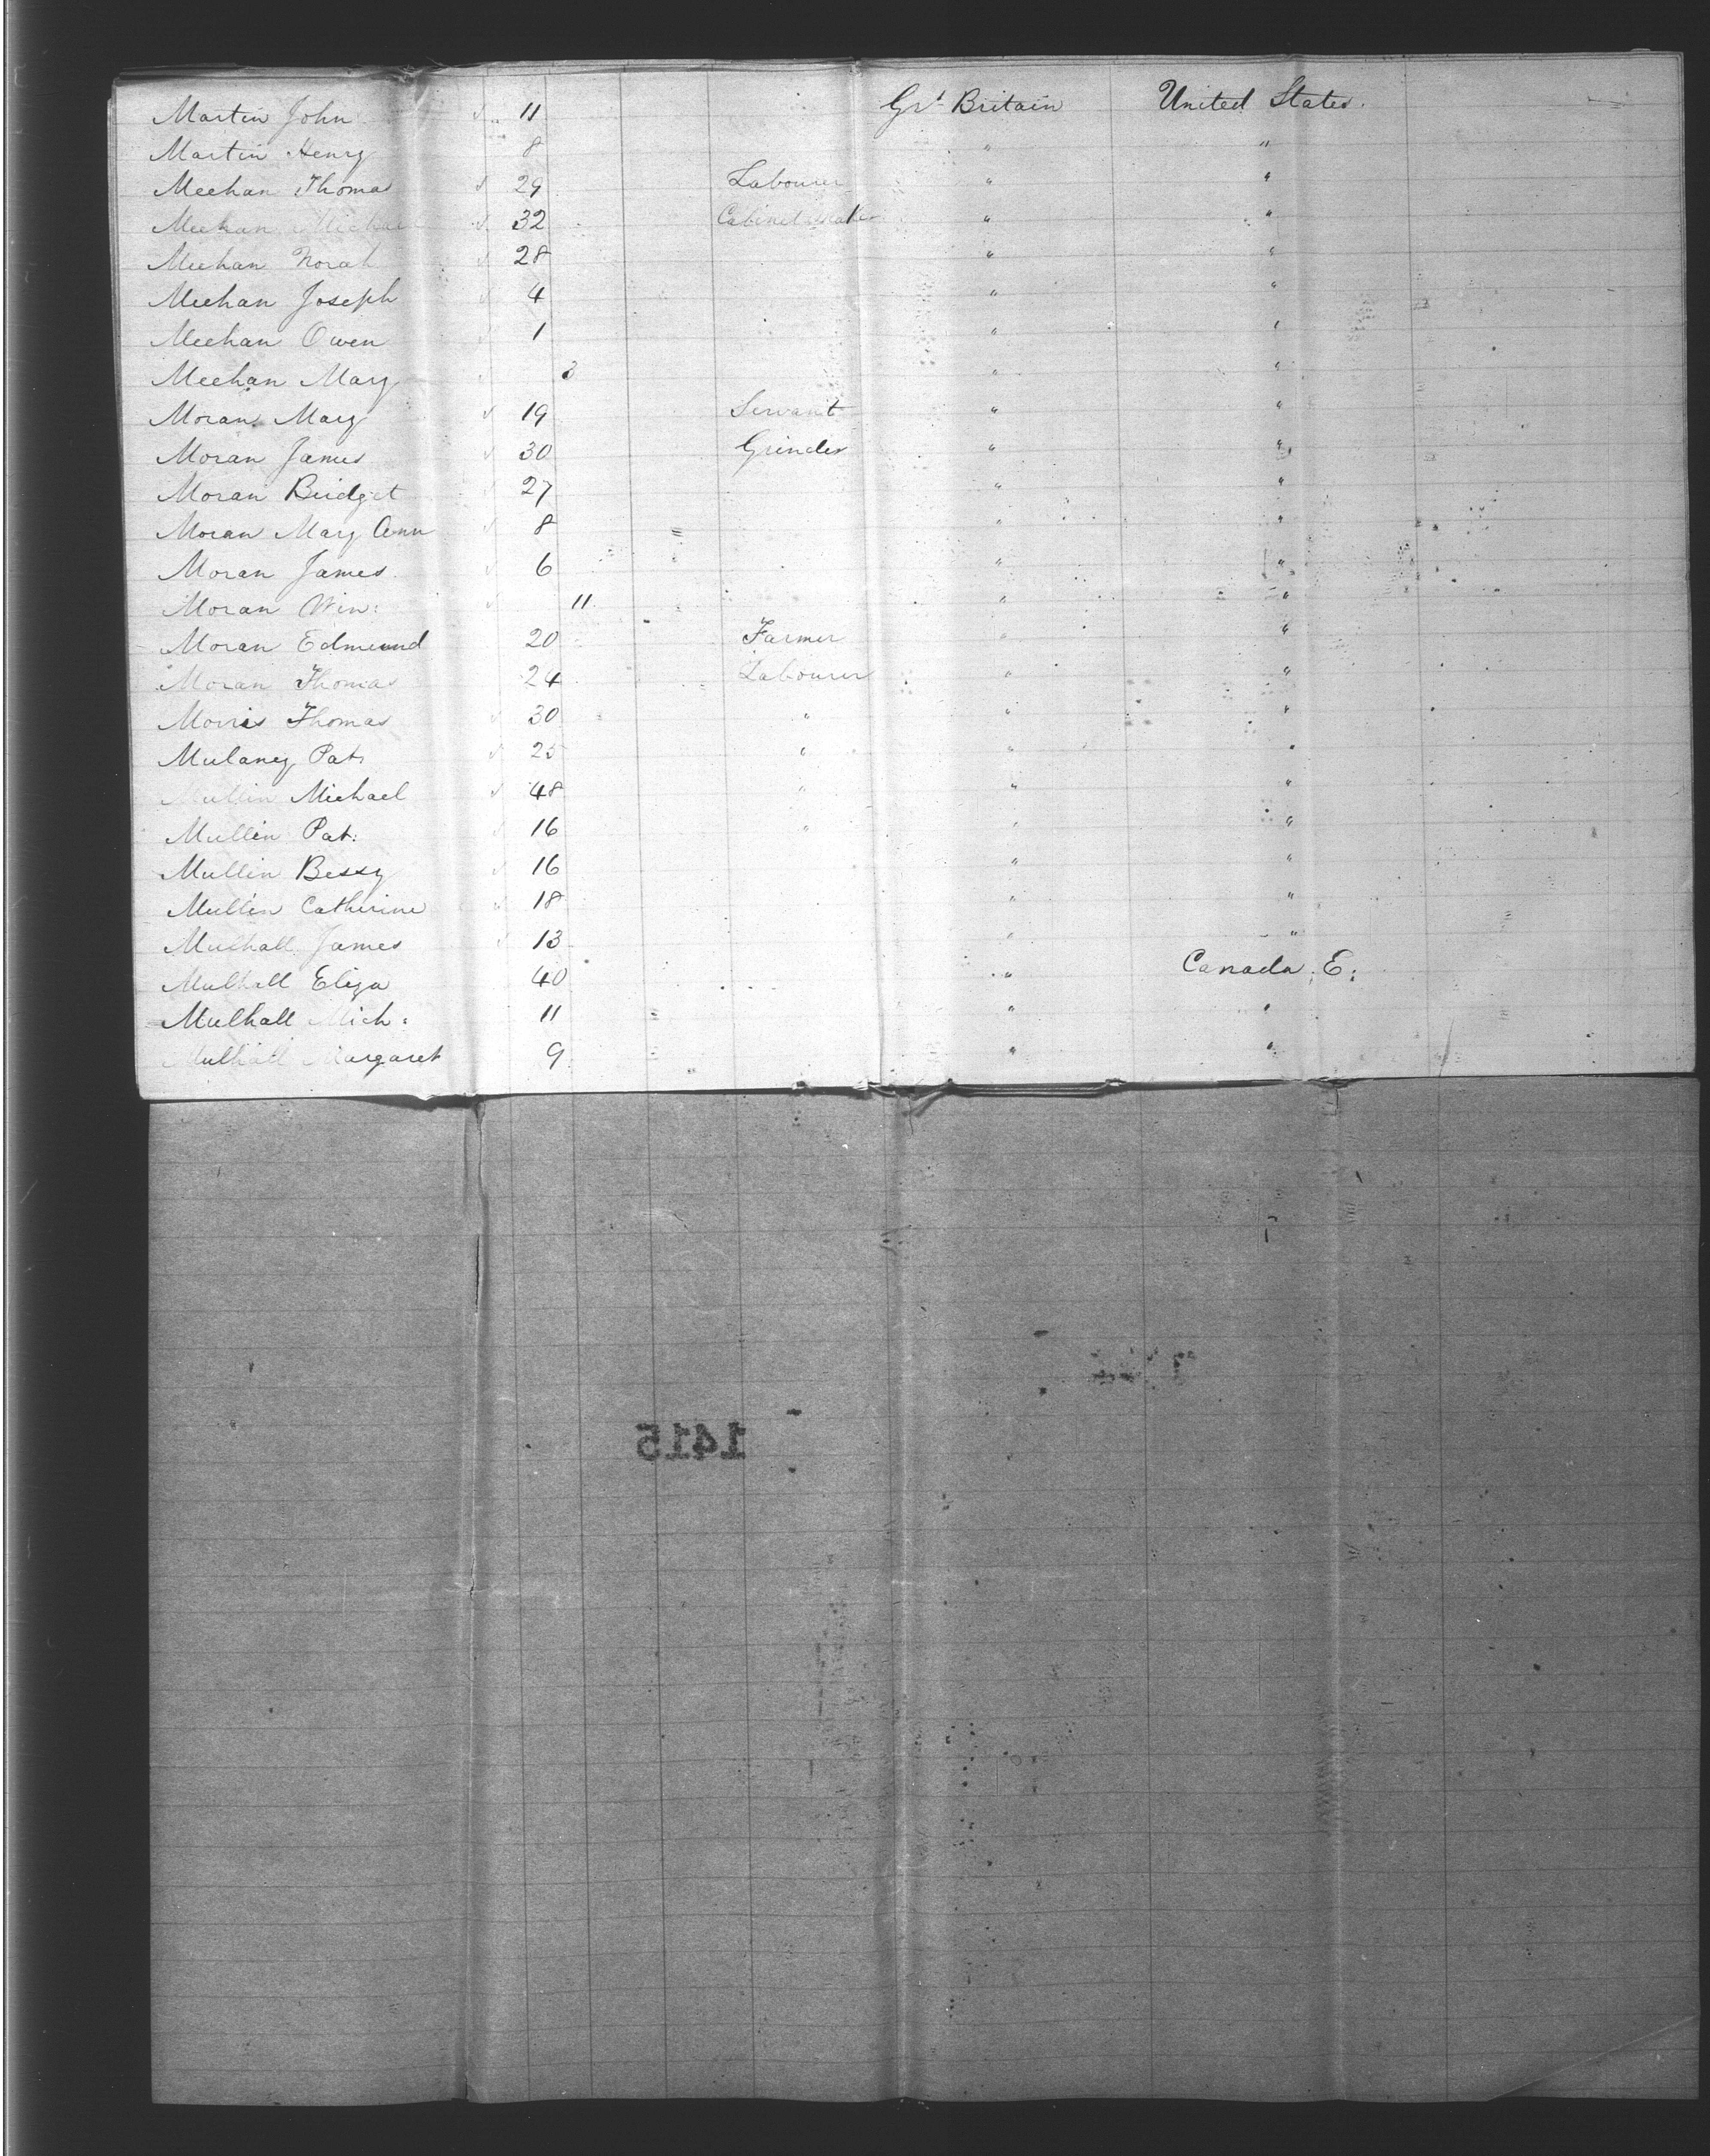 Martin John 11 Grt Britain United States.
Martin Henry 8 " "
Meehan Thomas 29 Labourer " "
Meehan Michael 32 Cabinet Maker " "
Meehan Norah 28 " "
Meehan Joseph 4 " "
Meehan Owen 1 " "
Meehan Mary 3 " "
Moran Mary 19 Servant " "
Moran James 30 Grinder " "
Moran Bridget 27 " "
Moran Mary Ann 8 " "
Moran James 6 " "
Moran Win: 11 " "
Moran Edmund 20 Farmer " "
Moran Thomas 24 Labourer " "
Morris Thomas 30 " " "
Mulany Pat: 25 " " "
Mullin Michael 48 " " "
Mullin Pat: 16 " " "
Mullin Bessy 16 " "
Mullin Catherine 18 " "
Mulhall James 13 " "
Mulhall Eliza 40 " Canada E:
Mulhall Mich: 11 " "
Mulhall Margaret 9 " "
1415